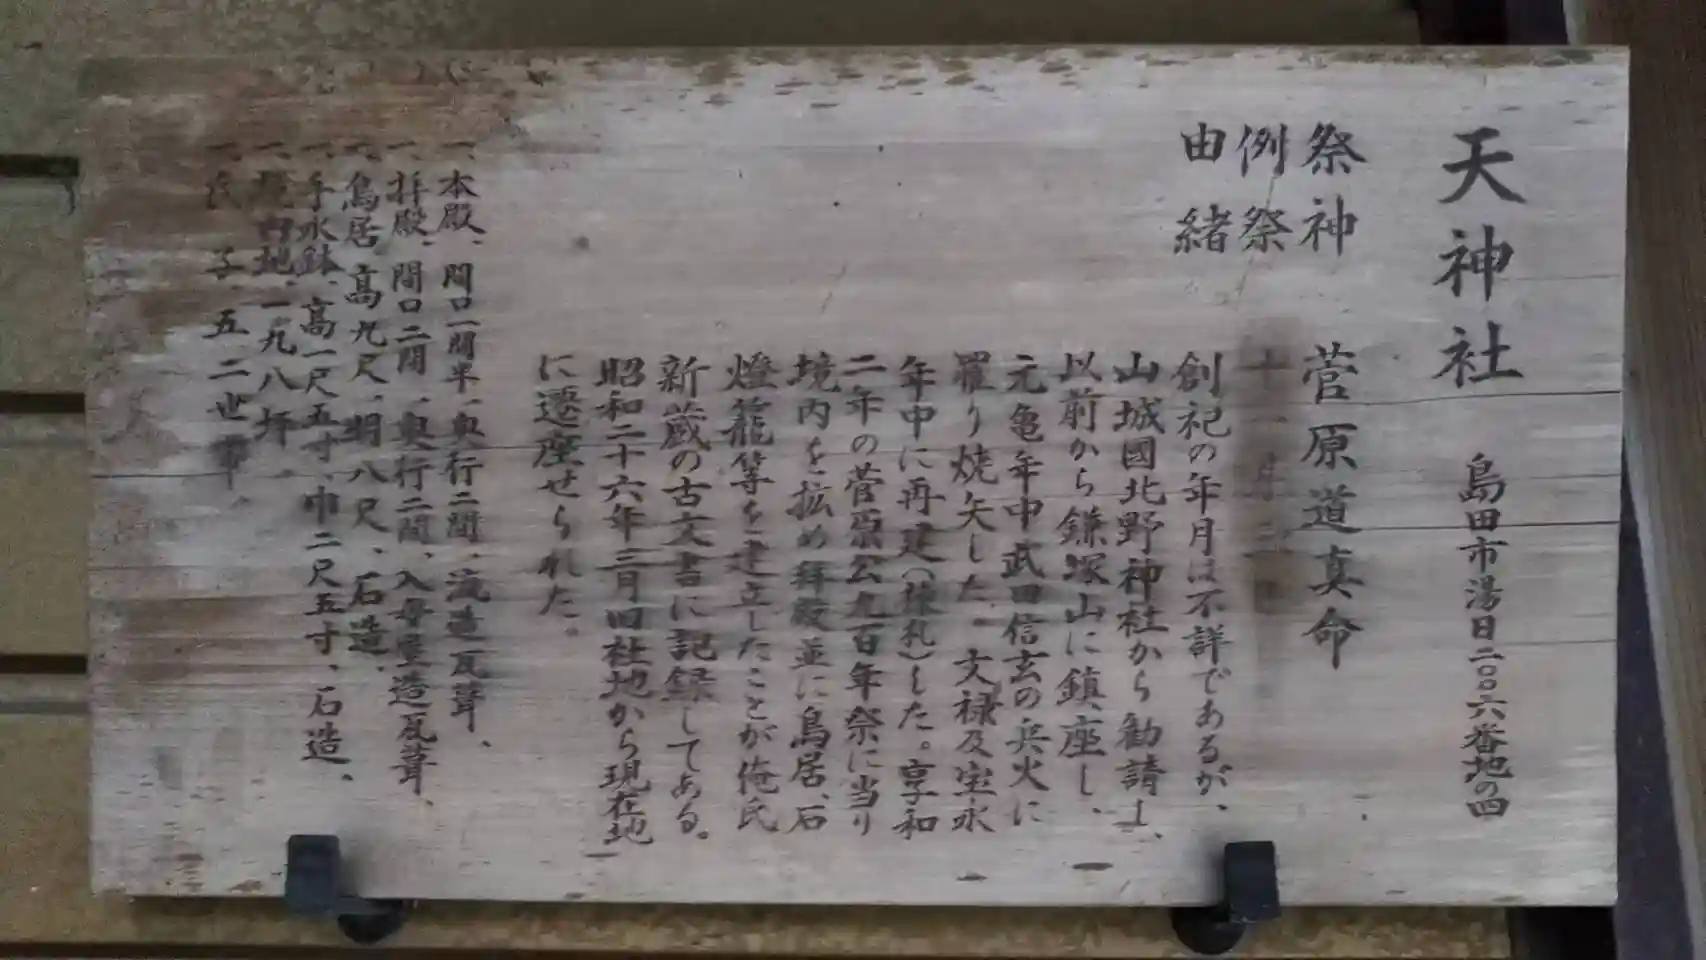 天神社 島田市湯日二〇〇六番地の四
祭神 菅原道真命
例祭 十一月
由緒 創祀の年月は不詳であるが、
山城國北野神社から勧請し、
以前から鎌塚山に鎮座し、
元亀年中武田信玄の兵火に
罹り焼失した。文禄及宝永
年中に再建(棟札)した。享和
二年の菅原公九百年祭に当り
境内を拡め拝殿並に鳥居、石
燈籠等を建立したことが俺氏
新蔵の古文書に記録してある。
昭和二十六年三月旧社地から現在地
に遷座せられた。
一、本殿、間口一間半、奥行二間、流造瓦葺、
一、拝殿、間口二間、奥行二間、入母屋造瓦葺、
一、鳥居、高九尺、明八尺、石造、
一、手水鉢、高一尺五寸、巾二尺五寸、石造、
一、境内地、一九八坪、
一、氏子、五二世帯、